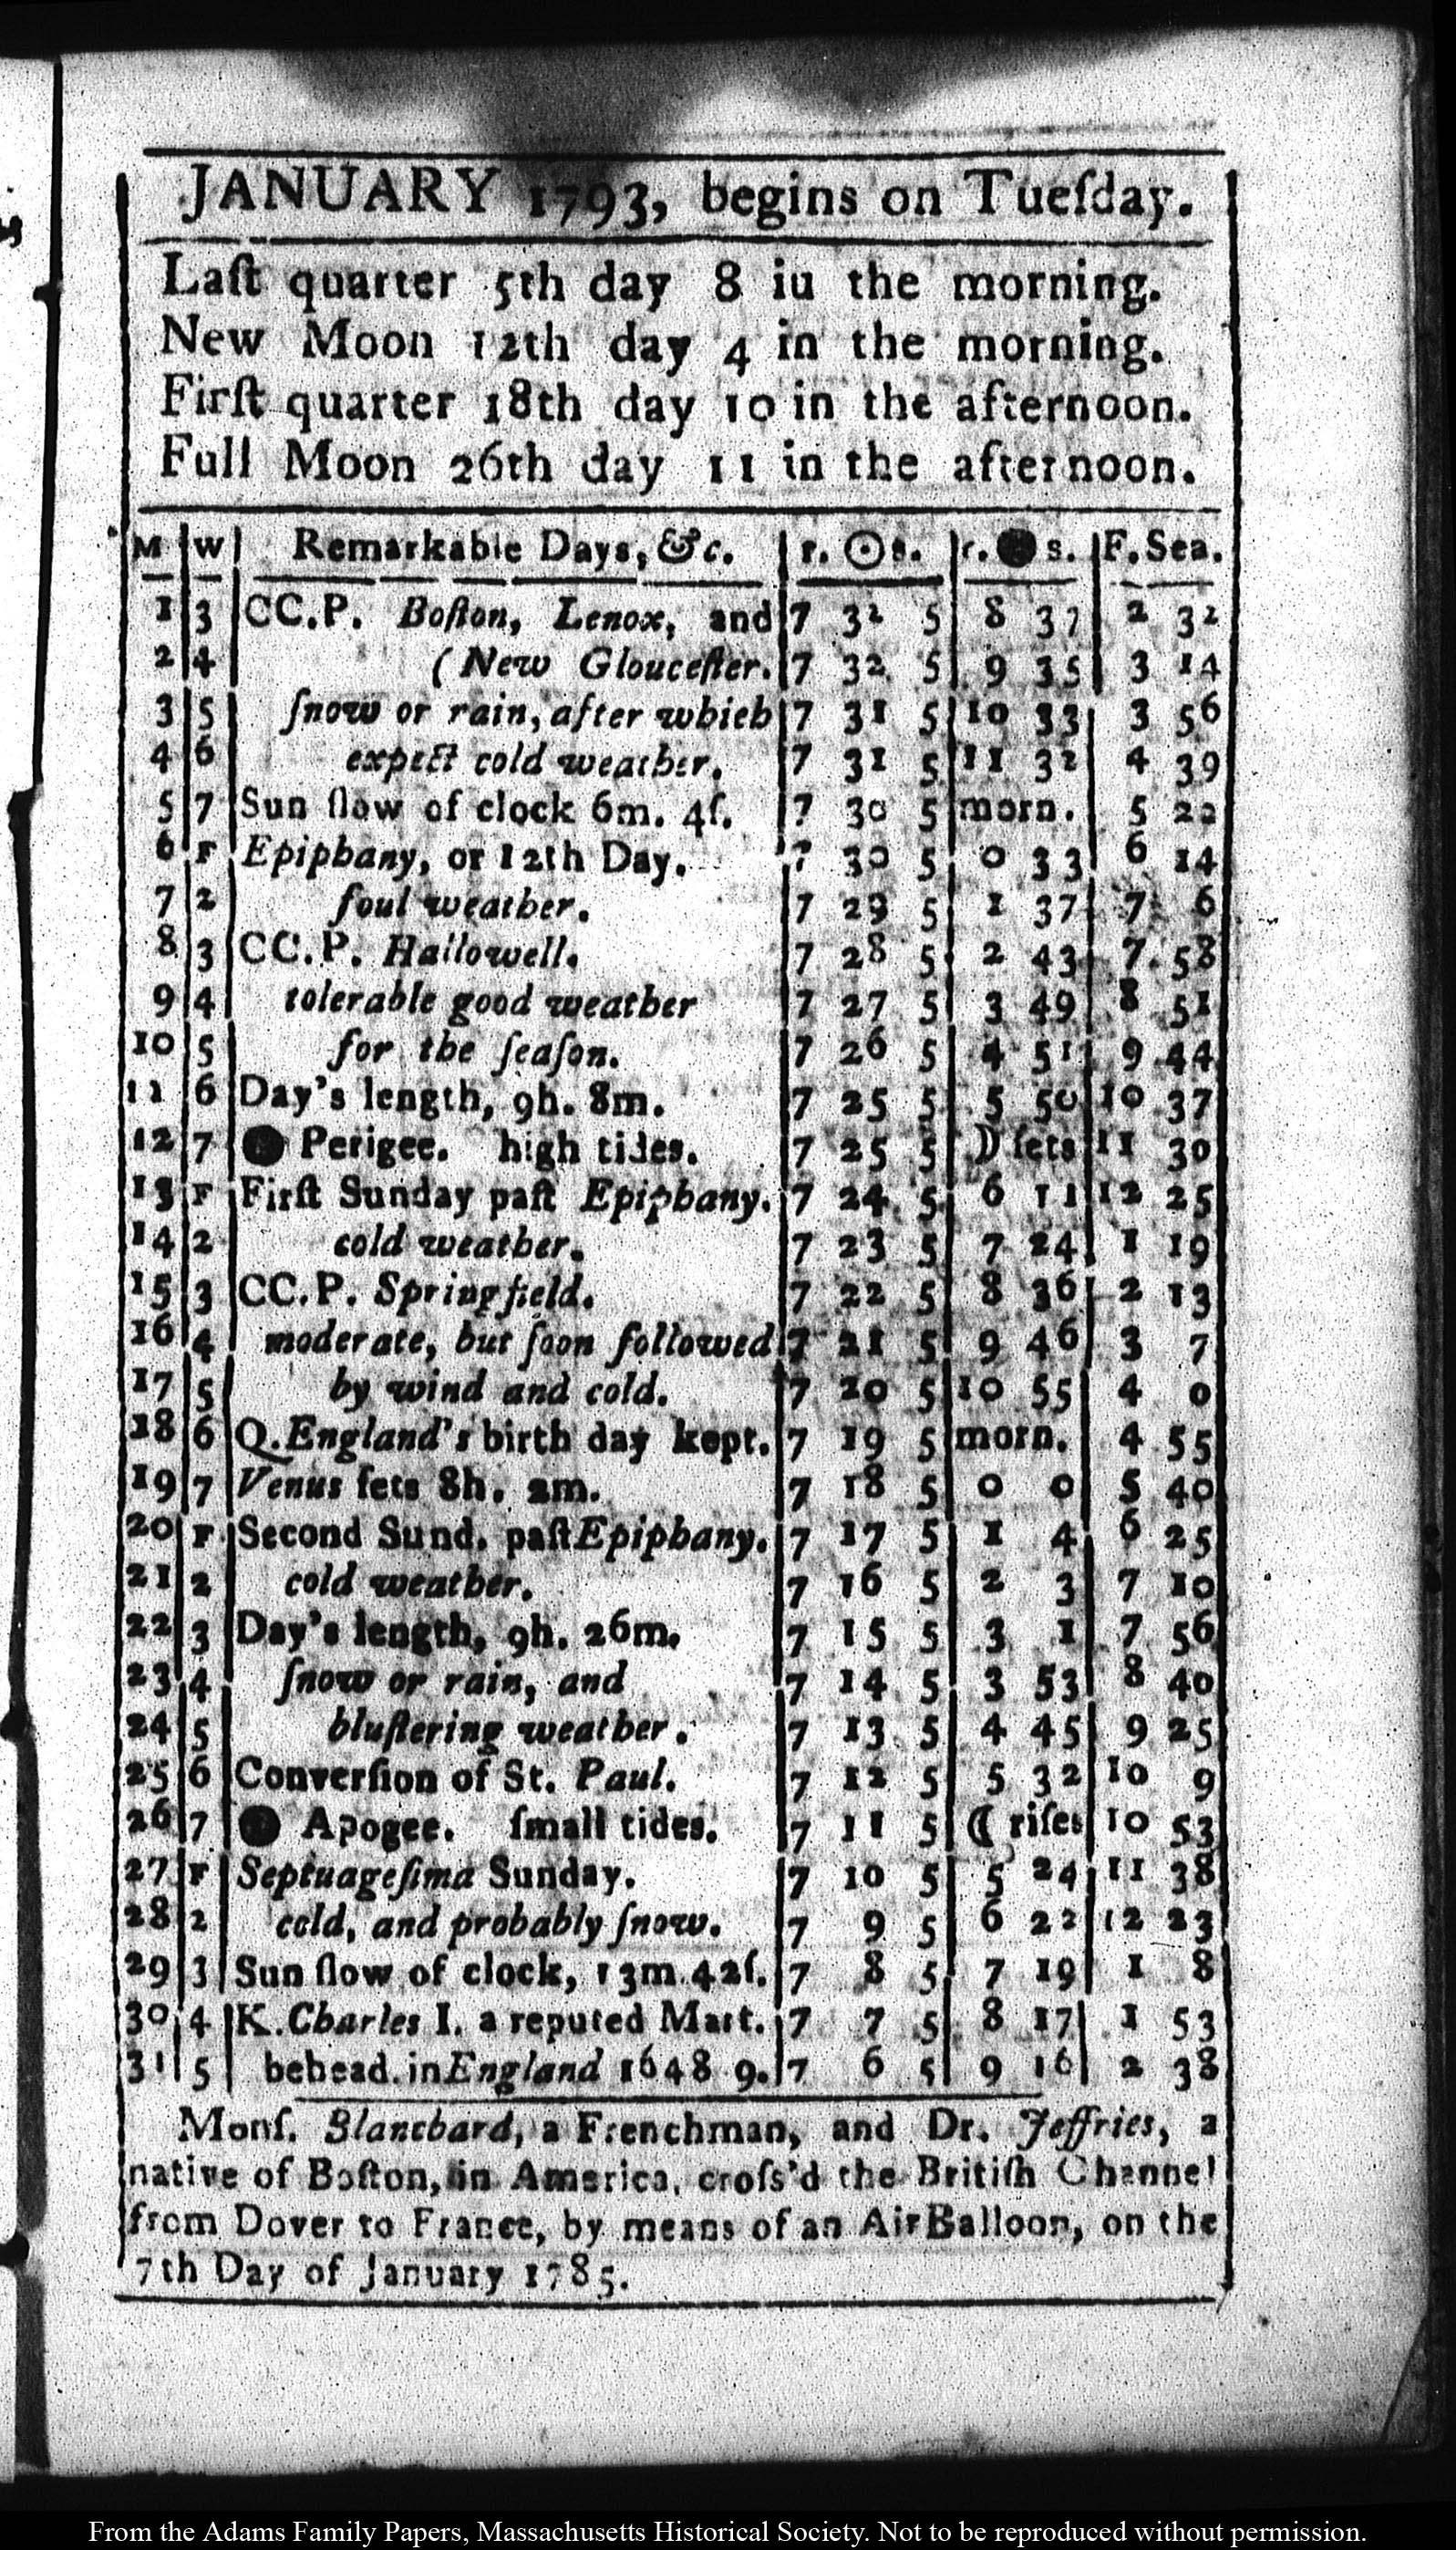 JANUARY 1793, begins on Tueſday.
Laſt quarter 5th day 8 iu the morning.
New Moon 12th day 4 in the morning.
Firſt quarter 18th day 10 in the afternoon.
Full Moon 26th day 11 in the afternoon.
M W Remarkable Days, &c. r. ☉ s. r. ● s. F. Sea.
1 3 CC.P. Boſton, Lenox, and 7 32 5 8 37 2 32
2 4 (New Glouceſter. 7 32 5 9 35 3 14
3 5 ſnow or rain, after which 7 31 5 10 33 3 56
4 6 expect cold weather. 7 31 5 11 32 4 39
5 7 Sun ſlow of clock 6m. 4ſ. 7 30 5 morn. 5 22
6 F Epiphany, or 12th Day. 7 30 5 0 33 6 14
7 2 foul weather. 7 29 5 1 37 7 6
8 3 CC.P. Hallowell. 7 28 5 2 43 7 58
9 4 tolerable good weather 7 27 5 3 49 8 51
10 5 for the ſeaſon. 7 26 5 4 51 9 44
11 6 Day's length, 9h. 8m. 7 25 5 5 50 10 37
12 7 ● Perigee. high tides. 7 25 5 ☽ ſets 11 30
13 F Firſt Sunday paſt Epiphany. 7 24 5 6 11 12 25
14 2 cold weather. 7 23 5 7 24 1 19
15 3 CC.P. Springfield. 7 22 5 8 36 2 13
16 4 moderate, but ſoon followed 7 21 5 9 46 3 7
17 5 by wind and cold. 7 20 5 10 55 4 0
18 6 Q. England's birth day kept. 7 19 5 morn. 4 55
19 7 Venus ſets 8h. 2m. 7 18 5 0 0 5 40
20 F Second Sund. paſt Epiphany. 7 17 5 1 4 6 25
21 2 cold weather. 7 16 5 2 3 7 10
22 3 Day's length, 9h. 26m. 7 15 5 3 1 7 56
23 4 ſnow or rain, and 7 14 5 3 53 8 40
24 5 bluſtering weather. 7 13 5 4 45 9 25
25 6 Converſion of St. Paul. 7 12 5 5 32 10 9
26 7 ● Apogee. ſmall tides. 7 11 5 ☾ riſes 10 53
27 F Septuageſima Sunday. 7 10 5 5 24 11 38
28 2 cold, and probably ſnow. 7 9 5 6 22 12 23
29 3 Sun ſlow of clock, 13m. 42ſ. 7 8 5 7 19 1 8
30 4 K. Charles I. a reputed Mart. 7 7 5 8 17 1 53
31 5 behead. in England 1648 9. 7 6 5 9 16 2 38
Monſ. Blanchard, a Frenchman, and Dr. Jeffries, a
native of Boſton, in America, croſs'd the Britiſh Channel
from Dover to France, by means of an Air Balloon, on the
7th Day of January 1785.
From the Adams Family Papers, Massachusetts Historical Society. Not to be reproduced without permission.